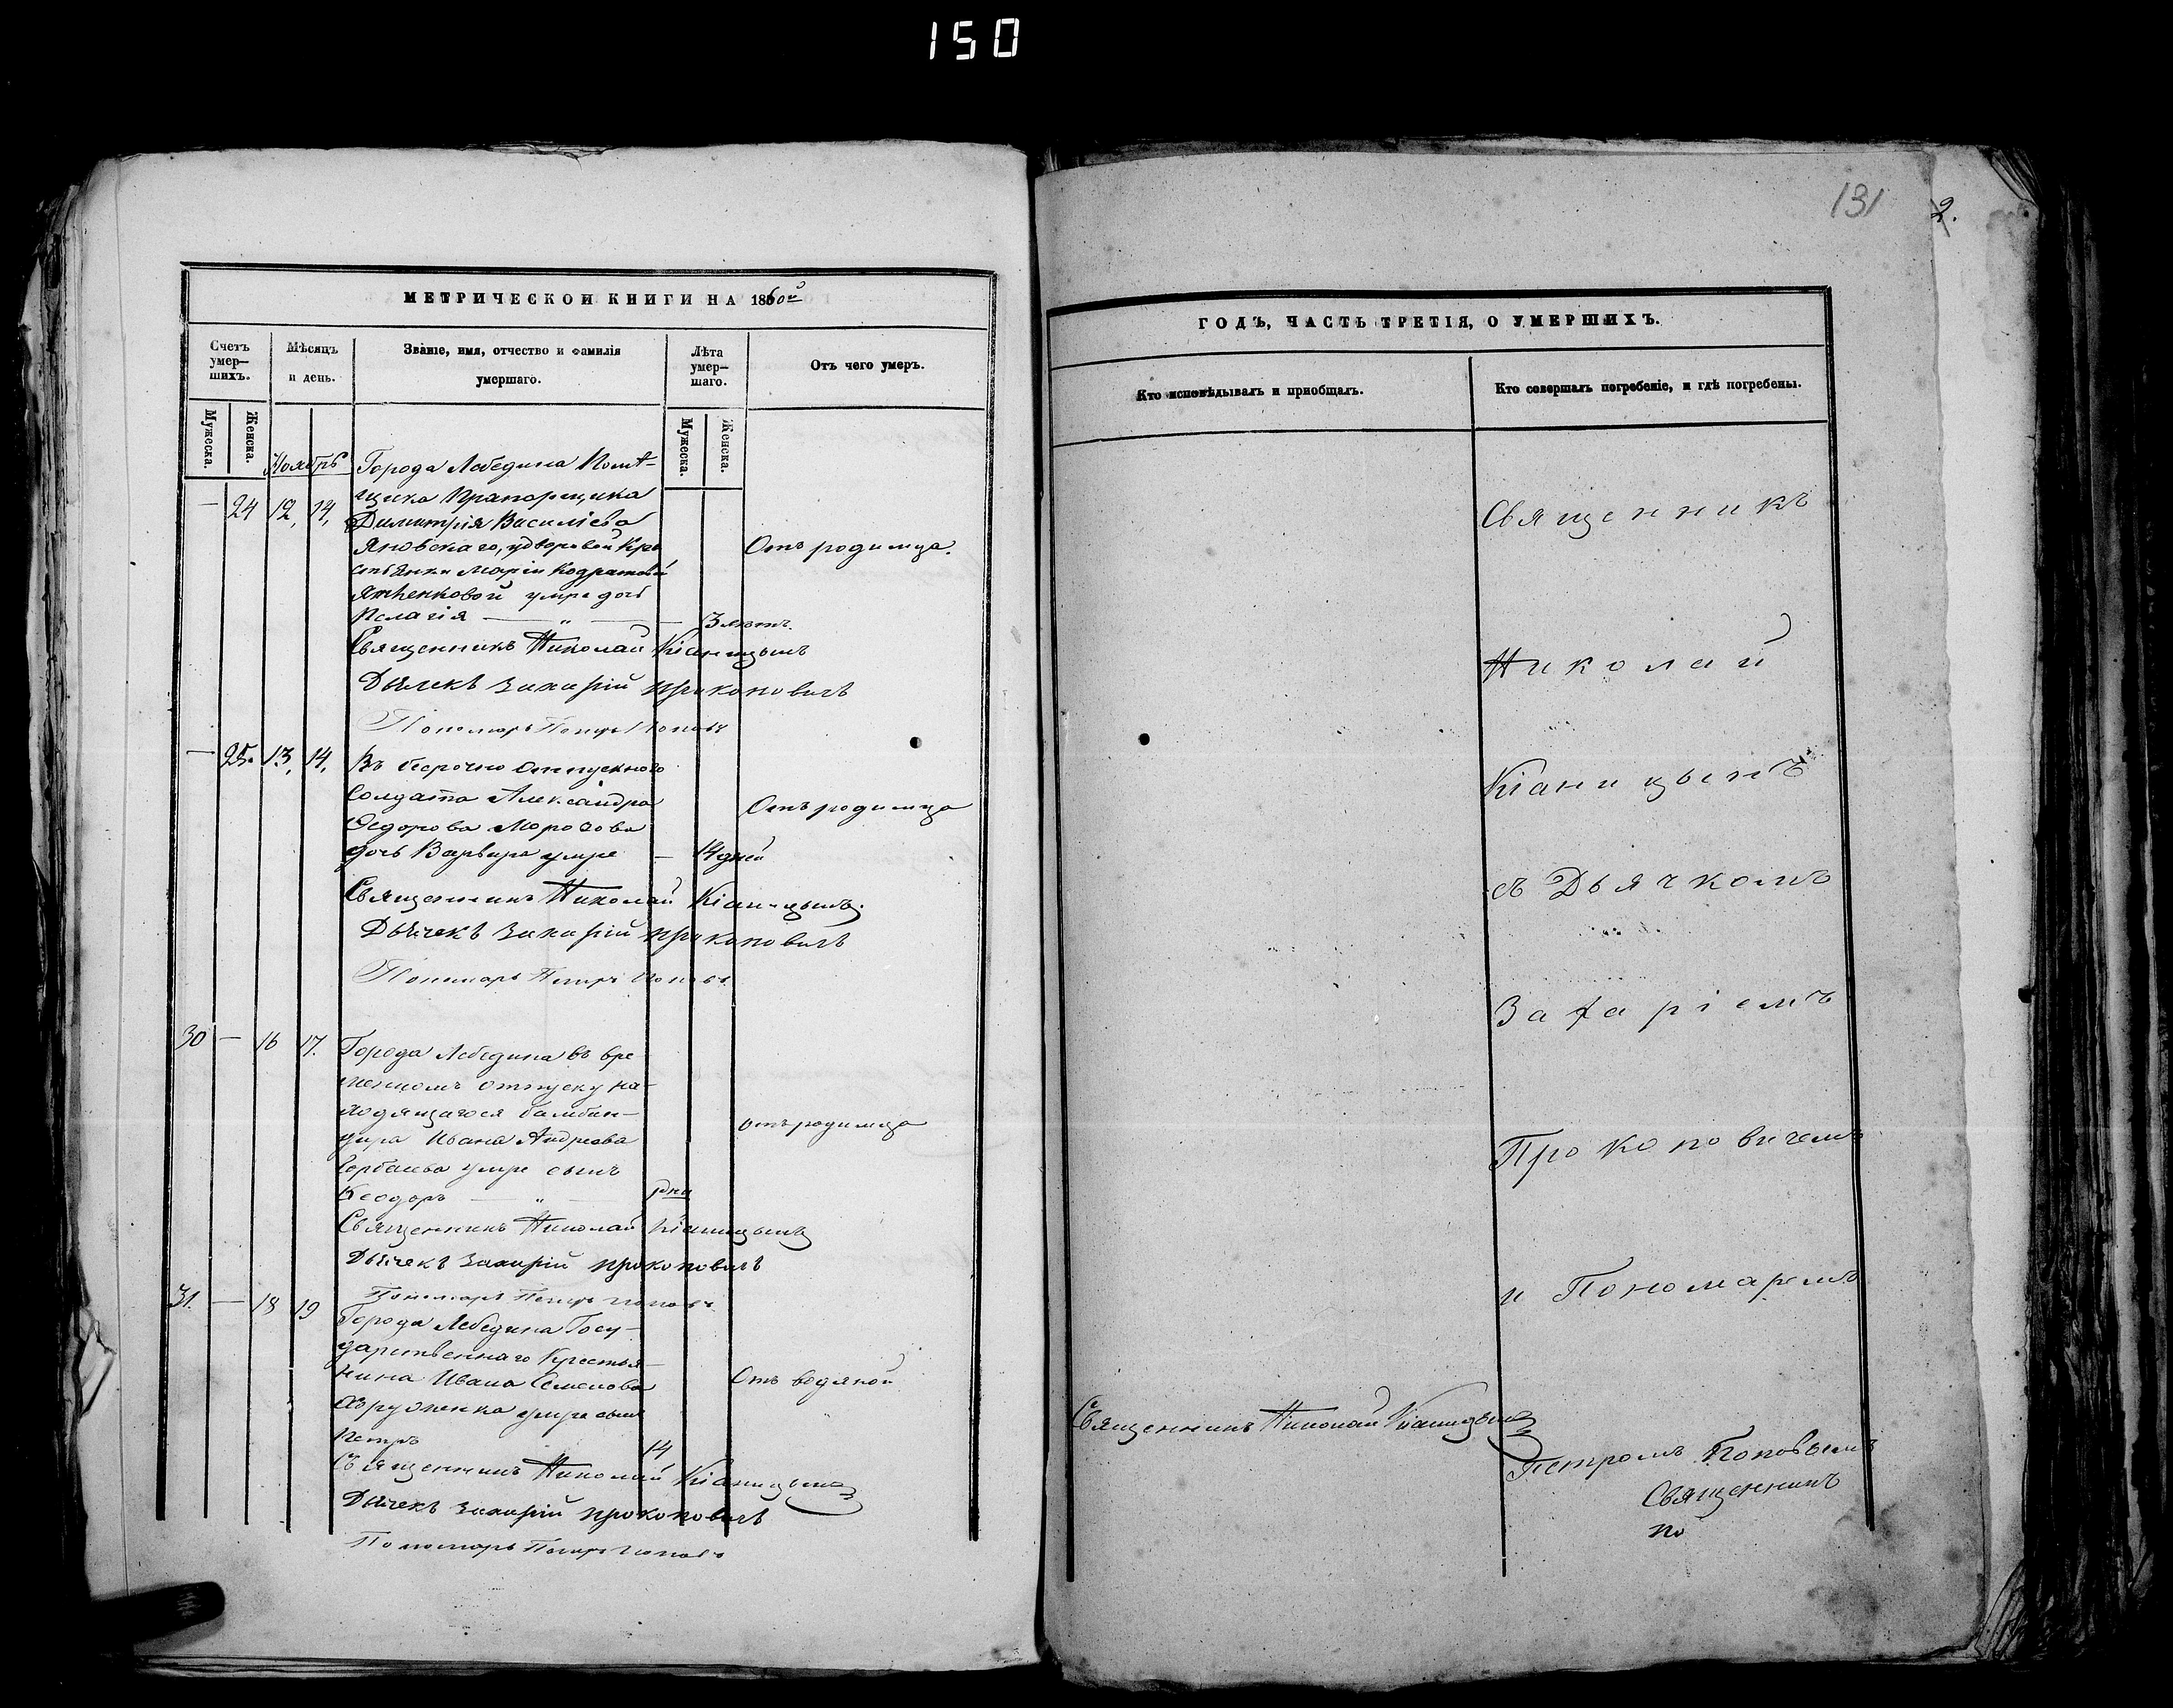 150
131
2.
МЕТРИЧЕСКОЙ КНИГИ НА 1860й
Счетъ умер—шихъ.
Мѣсяцъ и день.
Званіе, имя, отчество и фамилія умершаго.
Лѣта умер—шаго.
Отъ чего умеръ.
Мужеска.
Женска.
Мужеска.
Женска.
Ноябрь
— 24 12, 14,
Города Лебедина Помѣ-
щика Прапорщика
Димитрія Василіева
Яновскаго, дворовой Кре
стьянки Маріи
умре дочь
Пелагія — „ — — 3 лѣтъ.
Отъ родимца.
Священникъ Николай Кіаницынъ
Дьячекъ Захарій Прокоповичъ
Пономарь Петръ Поповъ
— 25. 13, 14,
Въ безсрочно отпускного
Солдата Александра
Ѳедорова Морозова
дочь Варвара умре — 14 дней
Отъ родимца
Священникъ Николай Кіаницынъ
Дьячекъ Захарій Прокоповичъ
Пономарь Петръ Поповъ
30 — 16 17.
Города Лебедина въ вре
менномъ отпуску на-
ходящагося бамбан-
дира Ивана Андреева
умре сынъ
Ѳеодоръ — „ — дни
отъ родимца
Священникъ Николай Кіаницынъ
Дьячекъ Захарій Прокоповичъ
Пономарь Петръ Поповъ
31. — 18 19
Города Лебедина Госу-
дарственнаго Крестья-
нина Ивана Семенова
умре сынъ
Петръ 14
Отъ водяной
Священникъ Николай Кіаницынъ
Дьячекъ Захарій Прокоповичъ
Пономарь Петръ Поповъ
ГОДЪ, ЧАСТЬ ТРЕТІЯ, О УМЕРШИХЪ.
Кто исповѣдывалъ и пріобщалъ.
Кто совершалъ погребеніе, и гдѣ погребены.
Священникъ
Николай
Кіаницынъ
съ Дьячкомъ
Захаріемъ
Прокоповичемъ
и Пономаремъ
Петромъ Поповымъ
Священникъ Николай Кіаницынъ
Священникъ
по